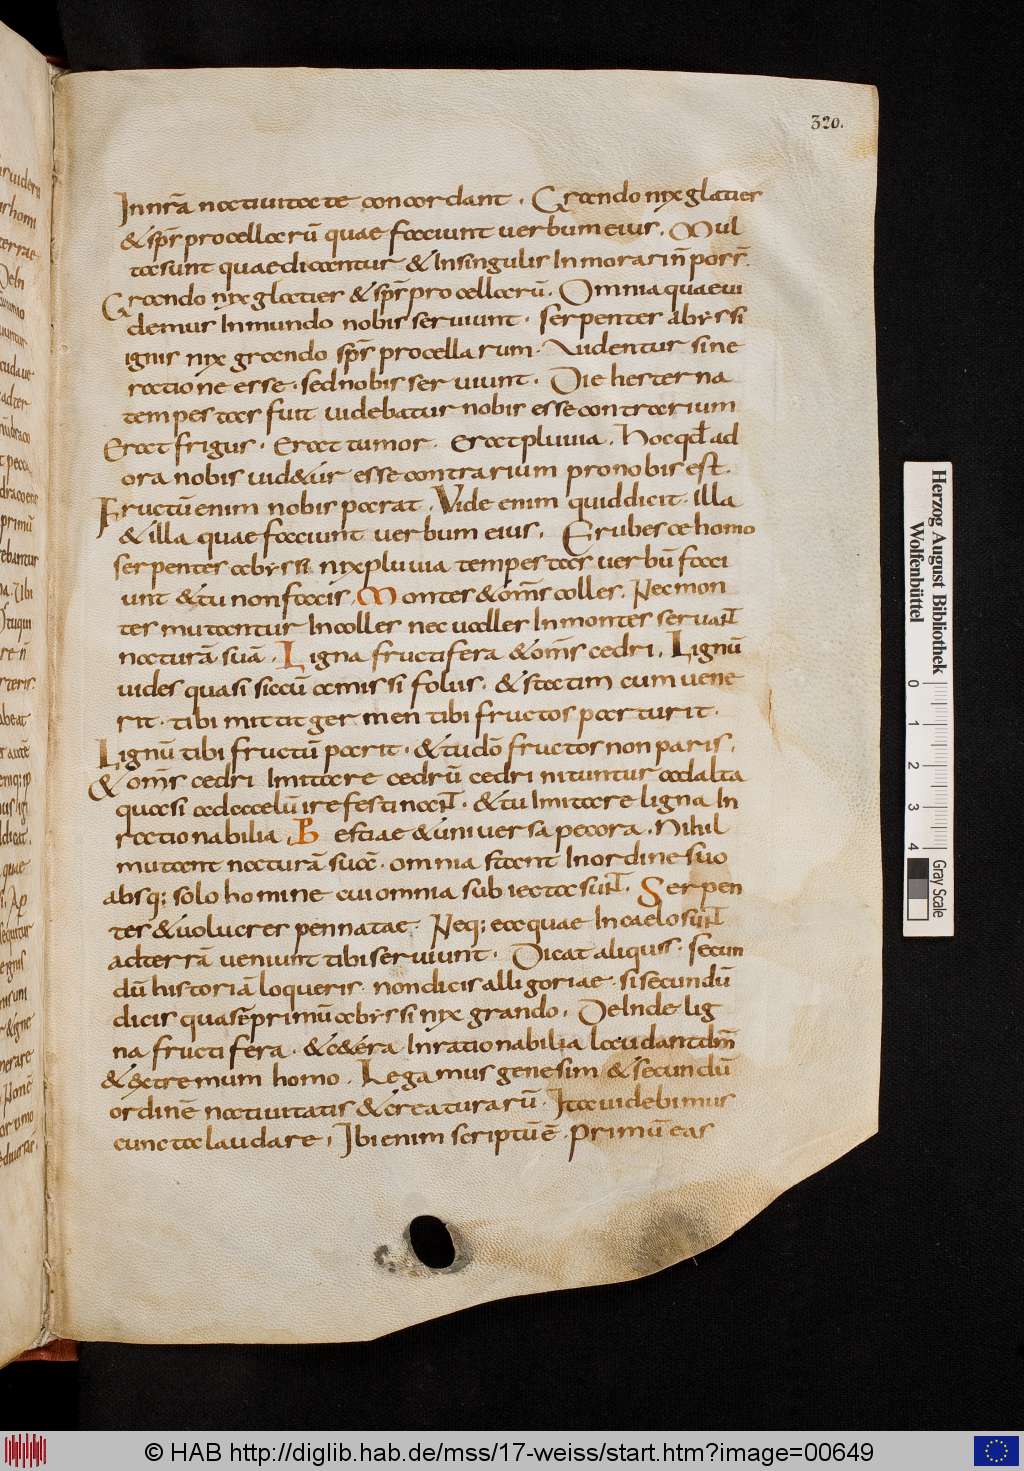 320.
In nr̄a natiuitate concordant . Grando nyx glatier
& sps̄ procellarū quae faciunt uerbum eius . Mul
ta sunt quae dicantur & In singulis In morari n̄ poss̄.
Grando nyx glatier & sps̄ procellarū . Omnia quae ui
demus In mundo nobis seruiunt . serpentes abyssi
ignis nyx grando sps̄ procellarum . Uidentur sine
ratione esse . sed nobis seruiunt . Die hesterna
tempestas fuit uidebatur nobis esse contrarium
Erat frigus . Erat tumor . Erat pluuia . Hoc qđ ad
ora nobis uid&ur esse contrarium pro nobis est .
Fructū enim nobis parat . Vide enim quid dicit . illa
& illa quae faciunt uerbum eius . Erubesce homo
serpentes abyssi nyx pluuia tempestas uerbū faci
unt & tu non facis . Montes & om̄s colles . Nec mon
tes mutantur In colles nec ualles In montes seruant
naturā suā . Ligna fructifera & om̄s cedri . Lignū
uides quasi siccū amissi folus . & statim cum uene
rit . tibi mittit germen tibi fructos parturit .
Lignū tibi fructū parit . & tu dō fructos non paris .
& om̄s cedri Imitare cedrū cedri nituntur ad alta
quasi ad caelū ire festinant . & tu Imitare ligna In
rationabilia . Bestiae & uniuersa pecora . Nihil
mutant naturā suā . omnia stant In ordine suo
absq; solo homine cui omnia subiecta sunt . Serpen
tes & uolucres pennatae . Neq; ea quae In caelo sunt
ad terrā ueniunt tibi seruiunt . Dicat aliquis . secun
dū historiā loqueris . non dicis alligoriae . si secundū
dicis quasē primū abyssi nyx grando . DeInde lig
na fructifera . & c&era Inrationabilia laudant dm̄
& extremum homo . Legamus genesim & secundū
ordinē natiuitatis & creaturarū . Ita uidebimus
cuncta laudare . Ibi enim scriptū ē . primū eas
Herzog August Bibliothek
Wolfenbüttel
0 1 2 3 4
Gray Scale
© HAB http://diglib.hab.de/mss/17-weiss/start.htm?image=00649